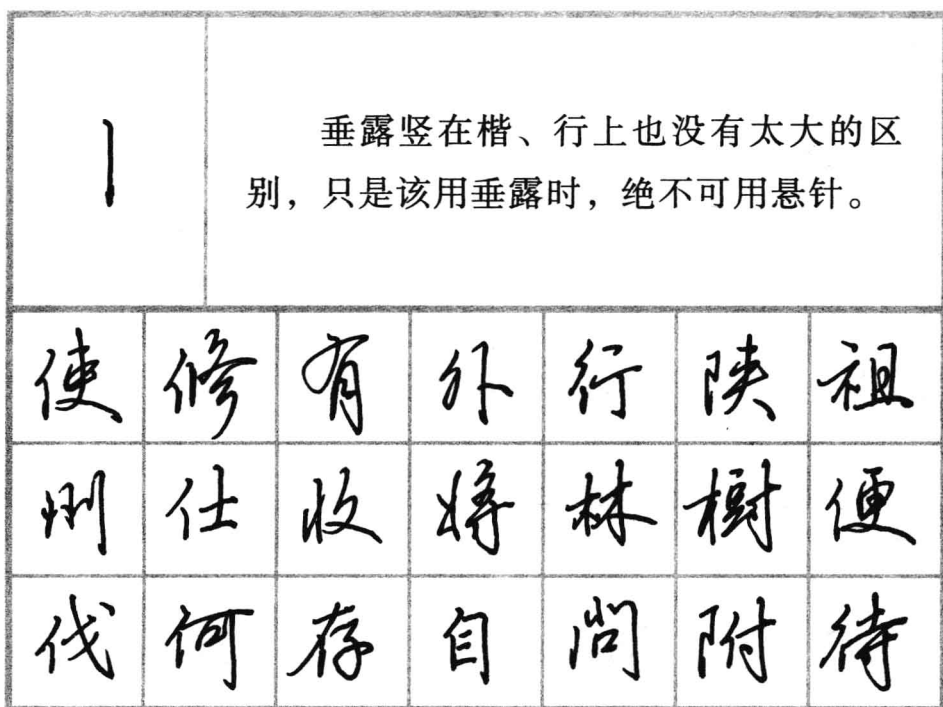 丨
垂露竖在楷、行上也没有太大的区
别，只是该用垂露时，绝不可用悬针。
使 修 有 外 行 陕 祖
州 仕 收 将 林 树 便
伐 何 存 自 问 附 待